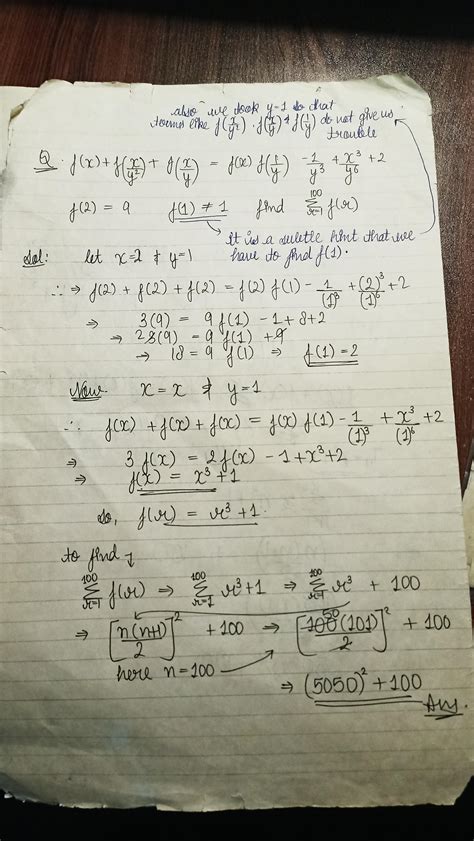 also we took y=1 so that
terms like f(x/y²), f(x/y) & f(1/y) do not give us
trouble
Q. f(x) + f(x/y²) + f(x/y) = f(x) f(1/y) - 1/y³ + x³/y⁶ + 2
f(2) = 9 f(1) ≠ 1 find 100 Σ r=1 f(r)
It is a sutle hint that we
have to find f(1).
Sol: let x=2 & y=1
∴ ⇒ f(2) + f(2) + f(2) = f(2) f(1) - 1/(1)³ + (2)³/(1)⁶ + 2
⇒ 3(9) = 9 f(1) - 1 + 8 + 2
⇒ 3(9) = 9 f(1) + 9
⇒ 18 = 9 f(1) ⇒ f(1) = 2
Now x = x & y = 1
∴ f(x) + f(x) + f(x) = f(x) f(1) - 1/(1)³ + x³/(1)⁶ + 2
⇒ 3 f(x) = 2 f(x) - 1 + x³ + 2
⇒ f(x) = x³ + 1
so, f(r) = r³ + 1.
to find
100 Σ r=1 f(r) ⇒ 100 Σ r=1 r³ + 1 ⇒ 100 Σ r=1 r³ + 100
⇒ [n(n+1)/2]² + 100 ⇒ [100 50 (101)/2]² + 100
here n = 100
⇒ (5050)² + 100
Ans.